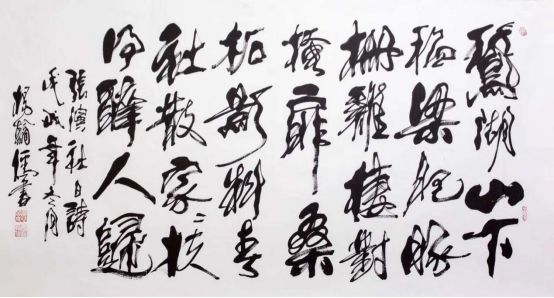 鵞湖山下
稻梁肥豚
柵雞棲對
掩扉桑
柘影斜春
社散家〻扶
得醉人歸
張演社日詩
戊戌年冬月
書